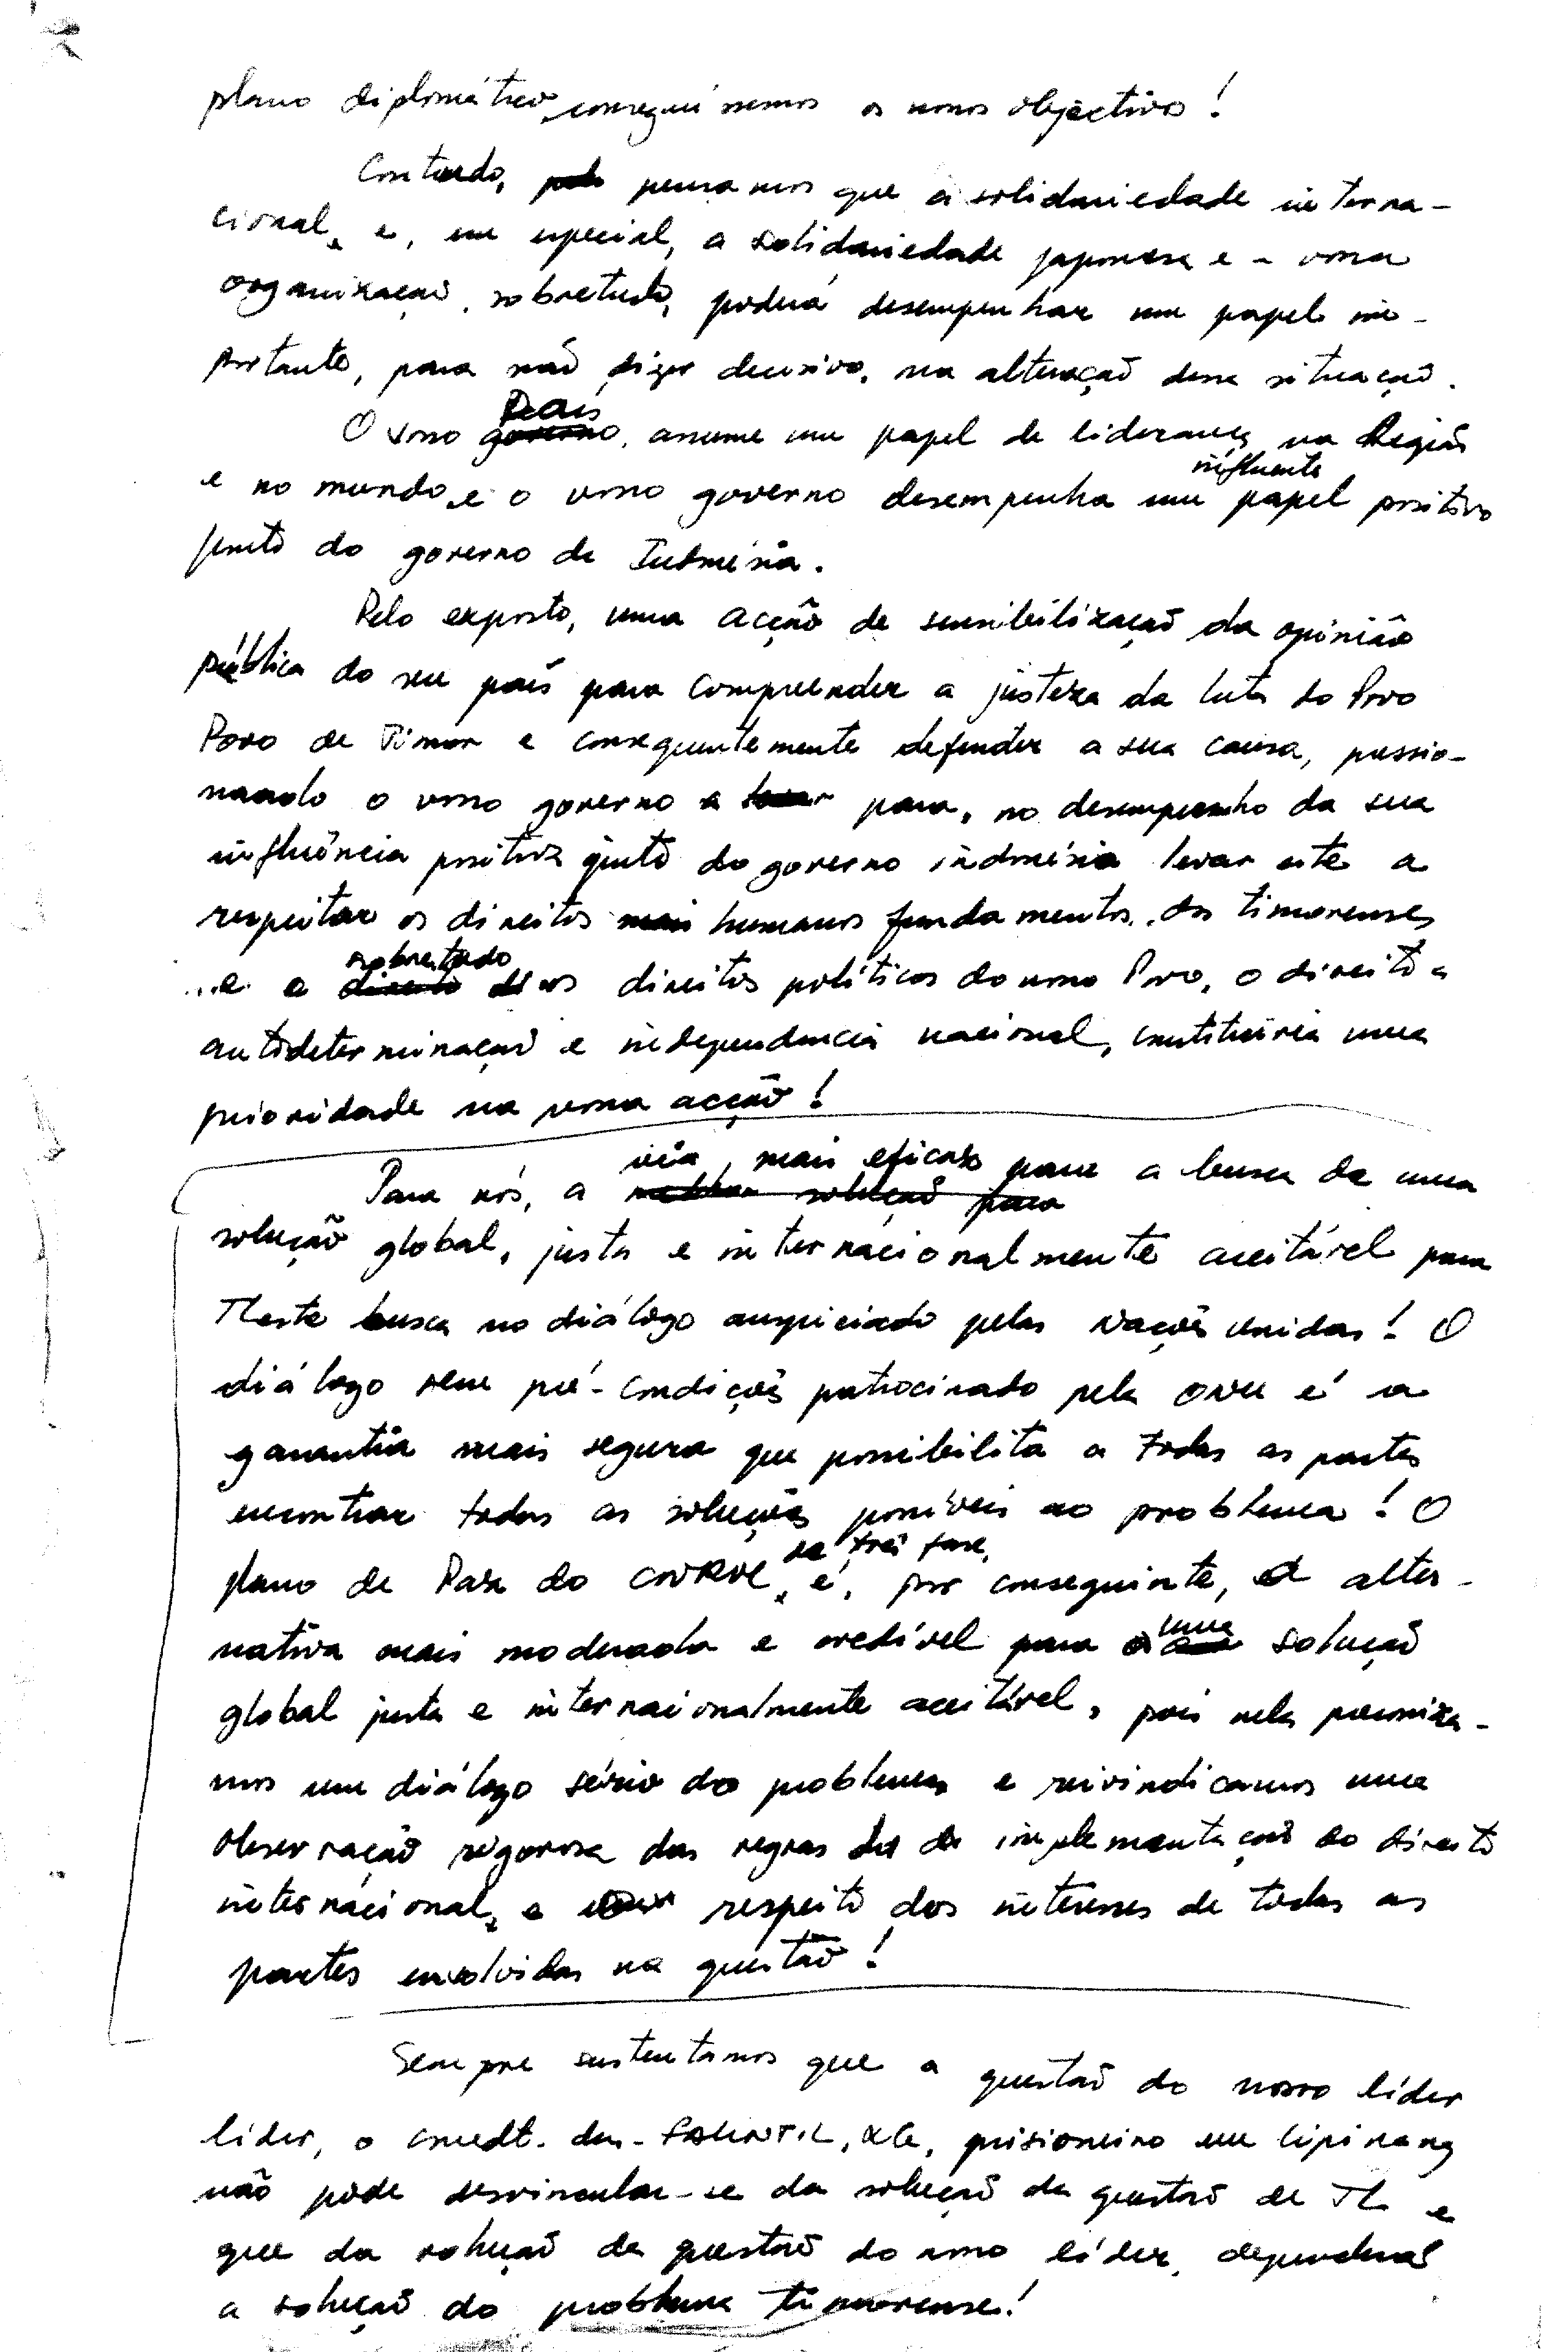 plano diplomático, conseguíssemos os nossos objectivos!
Contudo, pensamos que a solidariedade interna-
cional, e, em especial, a solidariedade japonesa e a vossa
organização, sobretudo, poderá desempenhar um papel im-
portante, para não dizer decisivo, na alteração dessa situação.
O vosso governo País, assume um papel de liderança na Região
e no mundo, e o vosso governo desempenha um influente papel positivo
junto do governo da Indonésia.
Pelo exposto, uma acção de sensibilização da opinião
pública do seu país para compreender a justeza da luta do Povo
Povo de Timor e consequentemente defender a sua causa, pressio-
nando o vosso governo a para, no desempenho da sua
influência positiva junto do governo indonésio levar este a
respeitar os direitos mais humanos fundamentos dos timorenses
e a direito sobretudo os direitos políticos do nosso Povo, o direito a
autodeterminação e independência nacional, constituiria uma
prioridade na vossa acção!
Para nós, a melhor solução para via, mais eficaz para a busca de uma
solução global, justa e internacionalmente aceitável para
TLeste busca no diálogo auspiciado pelas Nações Unidas! O
diálogo sem pré-condições patrocinado pela ONU é a
garantia mais segura que possibilita a todas as partes
encontrar todas as soluções possíveis ao problema! O
plano de Paz do CNRM, de três fase, é, por conseguinte, a alter-
nativa mais moderada e credível para uma solução
global justa e internacionalmente aceitável, pois nela preconiza-
mos um diálogo sério do problema e reivindicamos uma
observação rigorosa das regras de implementação do direito
internacional, e respeito dos interesses de todas as
partes envolvidas na questão!
Sempre sustentamos que a questão do nosso líder
líder, o cmdt. das FALINTIL, XG, prisioneiro em Cipinang
não pode desvincular-se da solução da questão de TL e
que da solução da questão do nosso líder, dependerá
a solução do problema timorense!